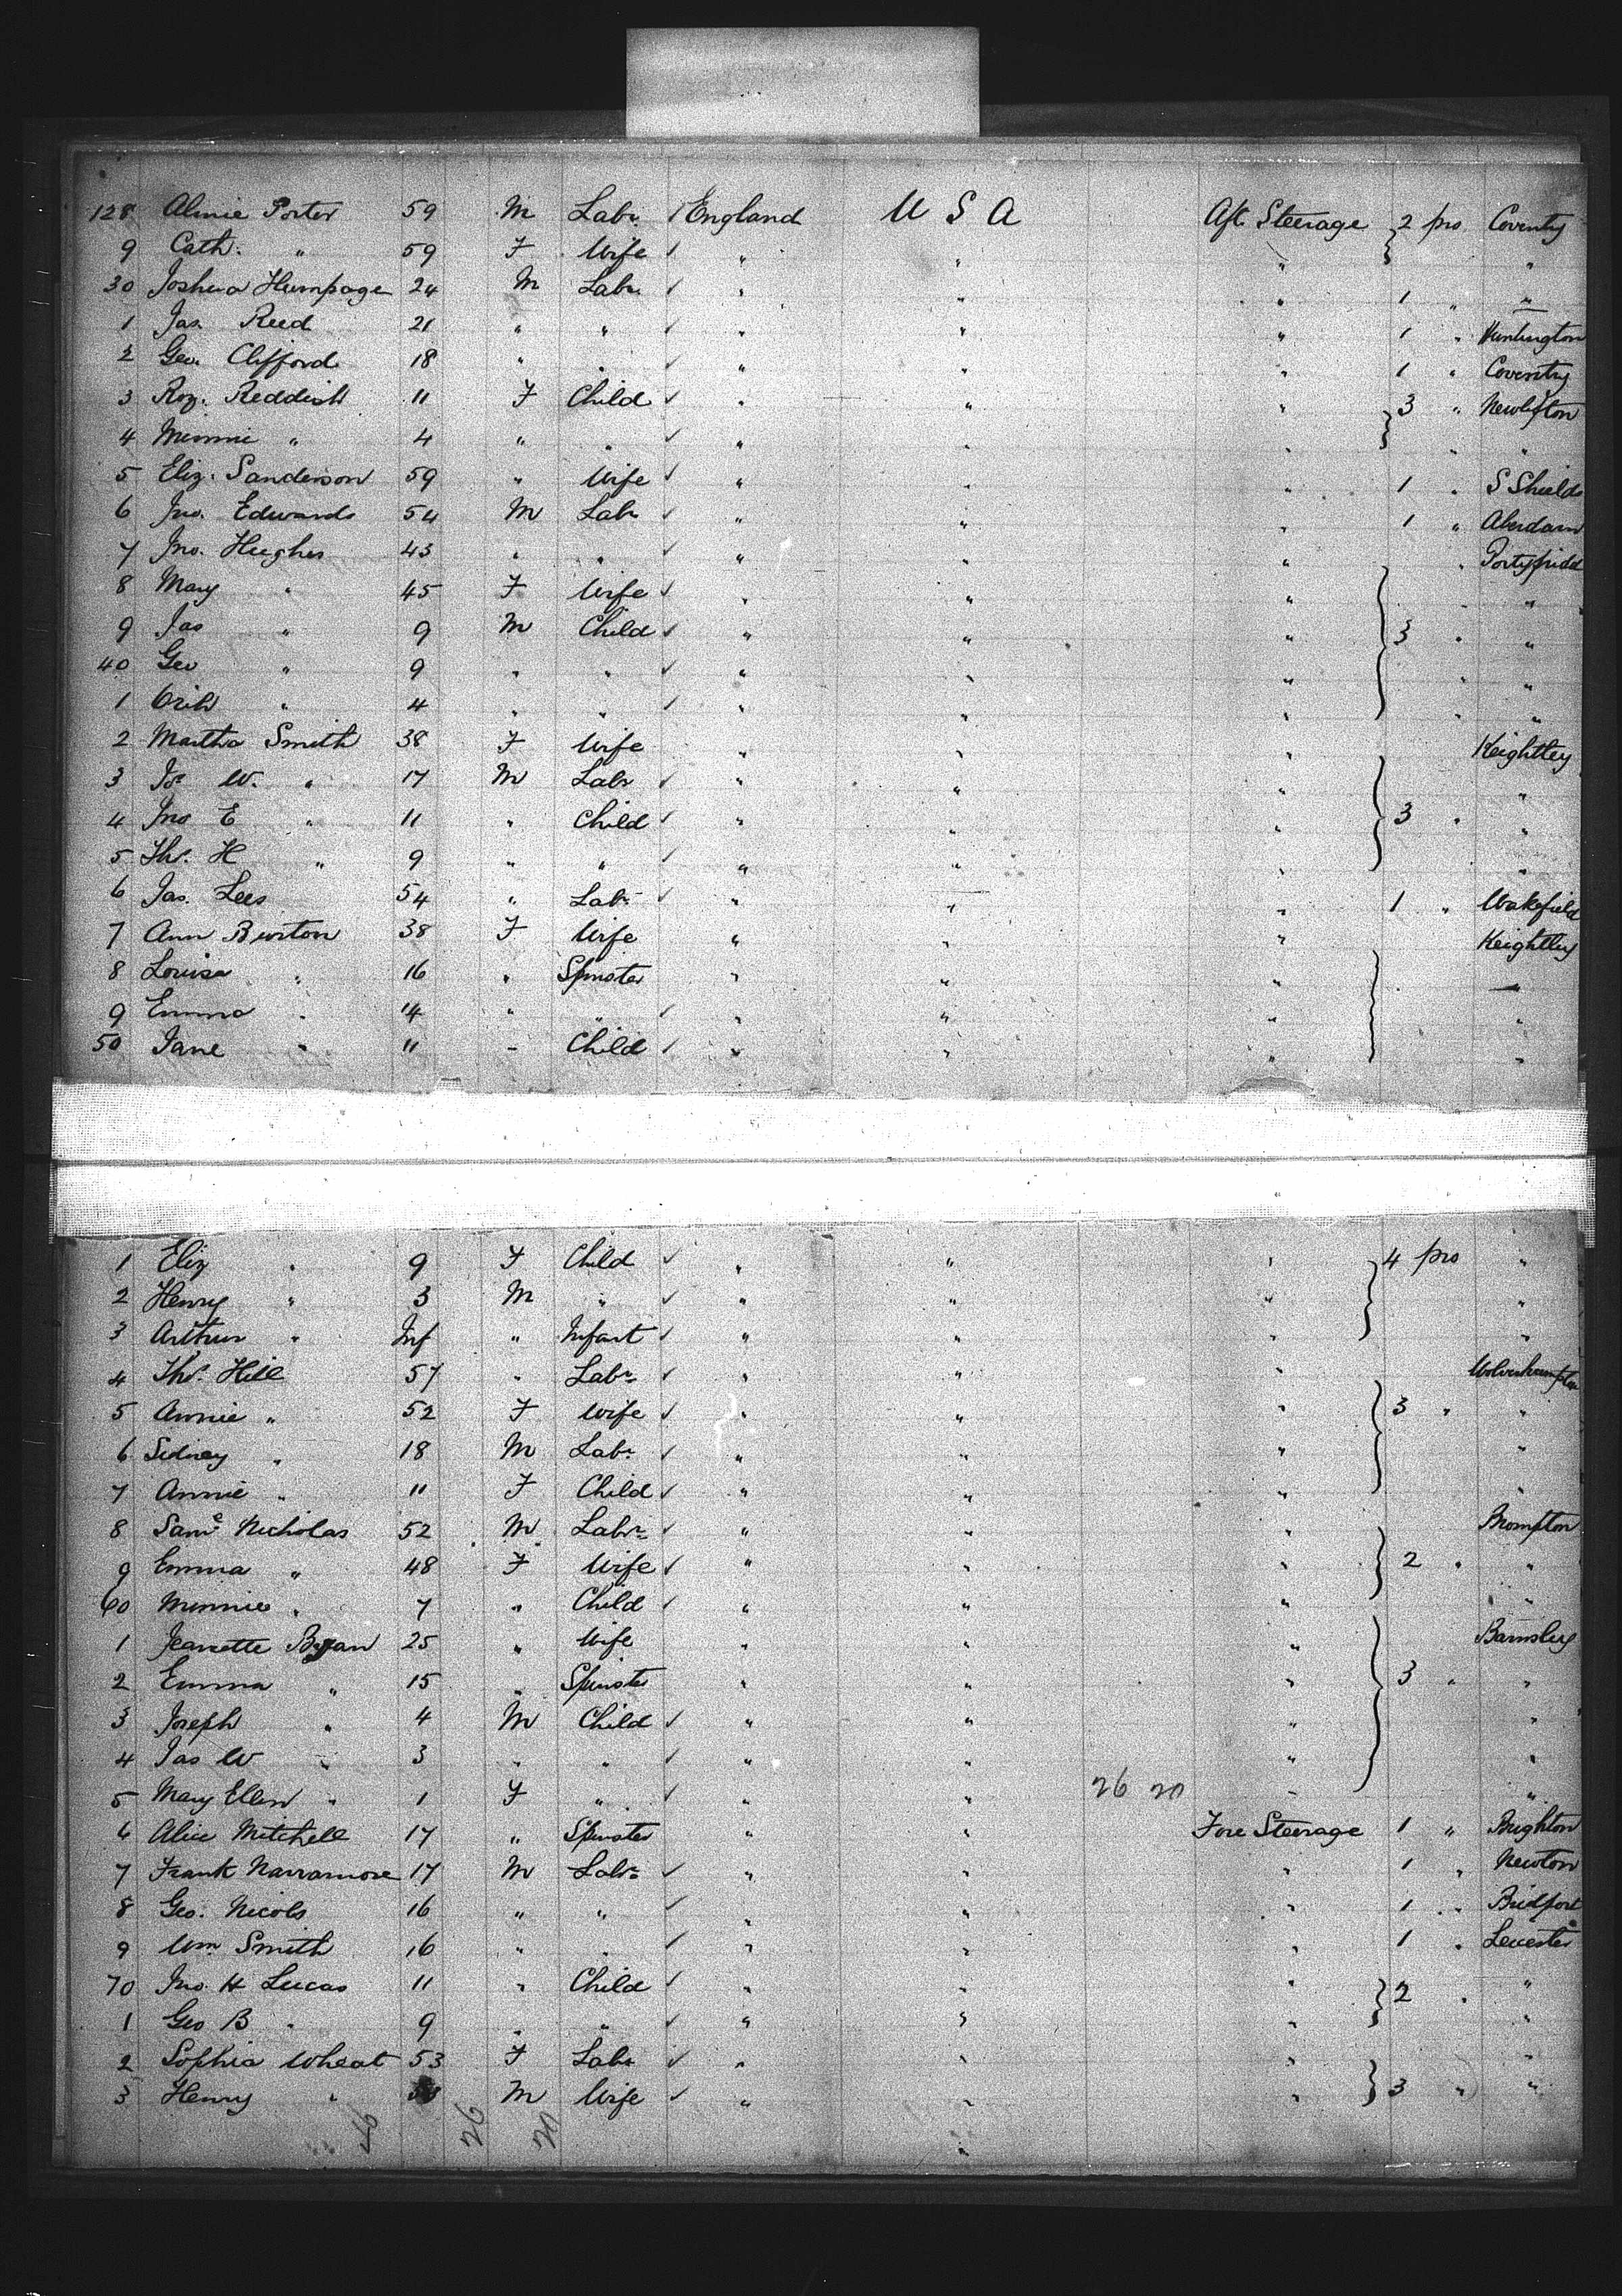 128 Almie Porter 59 M Labr England U S A Aft Steerage 2 pro Coventy
9 Cath. " 59 F Wife " " " "
30 Joshua Humpage 24 M Labr " " " 1 " "
1 Jas. Reed 21 " " " " " 1 " Huntington
2 Geo. Clifford 18 " " " " " 1 " Coventry
3 Roz. Reddish 11 F Child " " " 3 "
4 Minnie " 4 " " " " " " "
5 Eliz. Sanderson 59 " Wife " " " 1 " S Shields
6 Jno. Edwards 54 M Labr " " " 1 " Aberdarn
7 Jno. Hughes 43 " " " " " " Pontypridd
8 Mary " 45 F Wife " " " " "
9 Jas " 9 M Child " " " 3 " "
40 Geo " 9 " " " " " " "
1 " 4 " " " " " " "
2 Martha Smith 38 F Wife " " " Keightley
3 W. " 17 M Labr " " " "
4 Jno E " 11 " Child " " " 3 " "
5 Thos. H " 9 " " " " " "
6 Jas. Lees 54 " Labr " " " 1 " Wakefield
7 Ann Burton 38 F Wife " " " Keightley
8 Louisa " 16 " Spinster " " " "
9 Emma " 14 " " " " " "
50 Jane " 11 " Child " " " "
1 Eliz " 9 F Child " " " 4 pro "
2 Henry " 3 M " " " " "
3 Arthur " Inf " Infant " " " "
4 Thos. Hill 57 " Labr " " " Wolverhampton
5 Annie " 52 F Wife " " " 3 " "
6 Sidney " 18 M Labr " " " "
7 Annie " 11 F Child " " " "
8 Saml Nicholas 52 M Labr " " " Brompton
9 Emma " 48 F Wife " " " 2 " "
60 Minnie " 7 " Child " " " "
1 Jeanette Bryan 25 " Wife " " " Barnsley
2 Emma " 15 " Spinster " " " 3 " "
3 Joseph " 4 M Child " " " "
4 Jas W " 3 " " " " " "
5 Mary Ellen " 1 F " " " 26 20 " "
6 Alice Mitchell 17 " Spinster " " Fore Steerage 1 " Brighton
7 Frank Narramore 17 M Labr " " " 1 " Newton
8 Geo. Nicols 16 " " " " " 1 " Bridport
9 Wm Smith 16 " " " " " 1 " Leicester
70 Jno. H Lucas 11 " Child " " " 2 " "
1 Geo B " 9 " " " " " "
2 Sophia Wheat 53 F Labr " " " "
3 Henry " M Wife " " " 3 " "
26 20